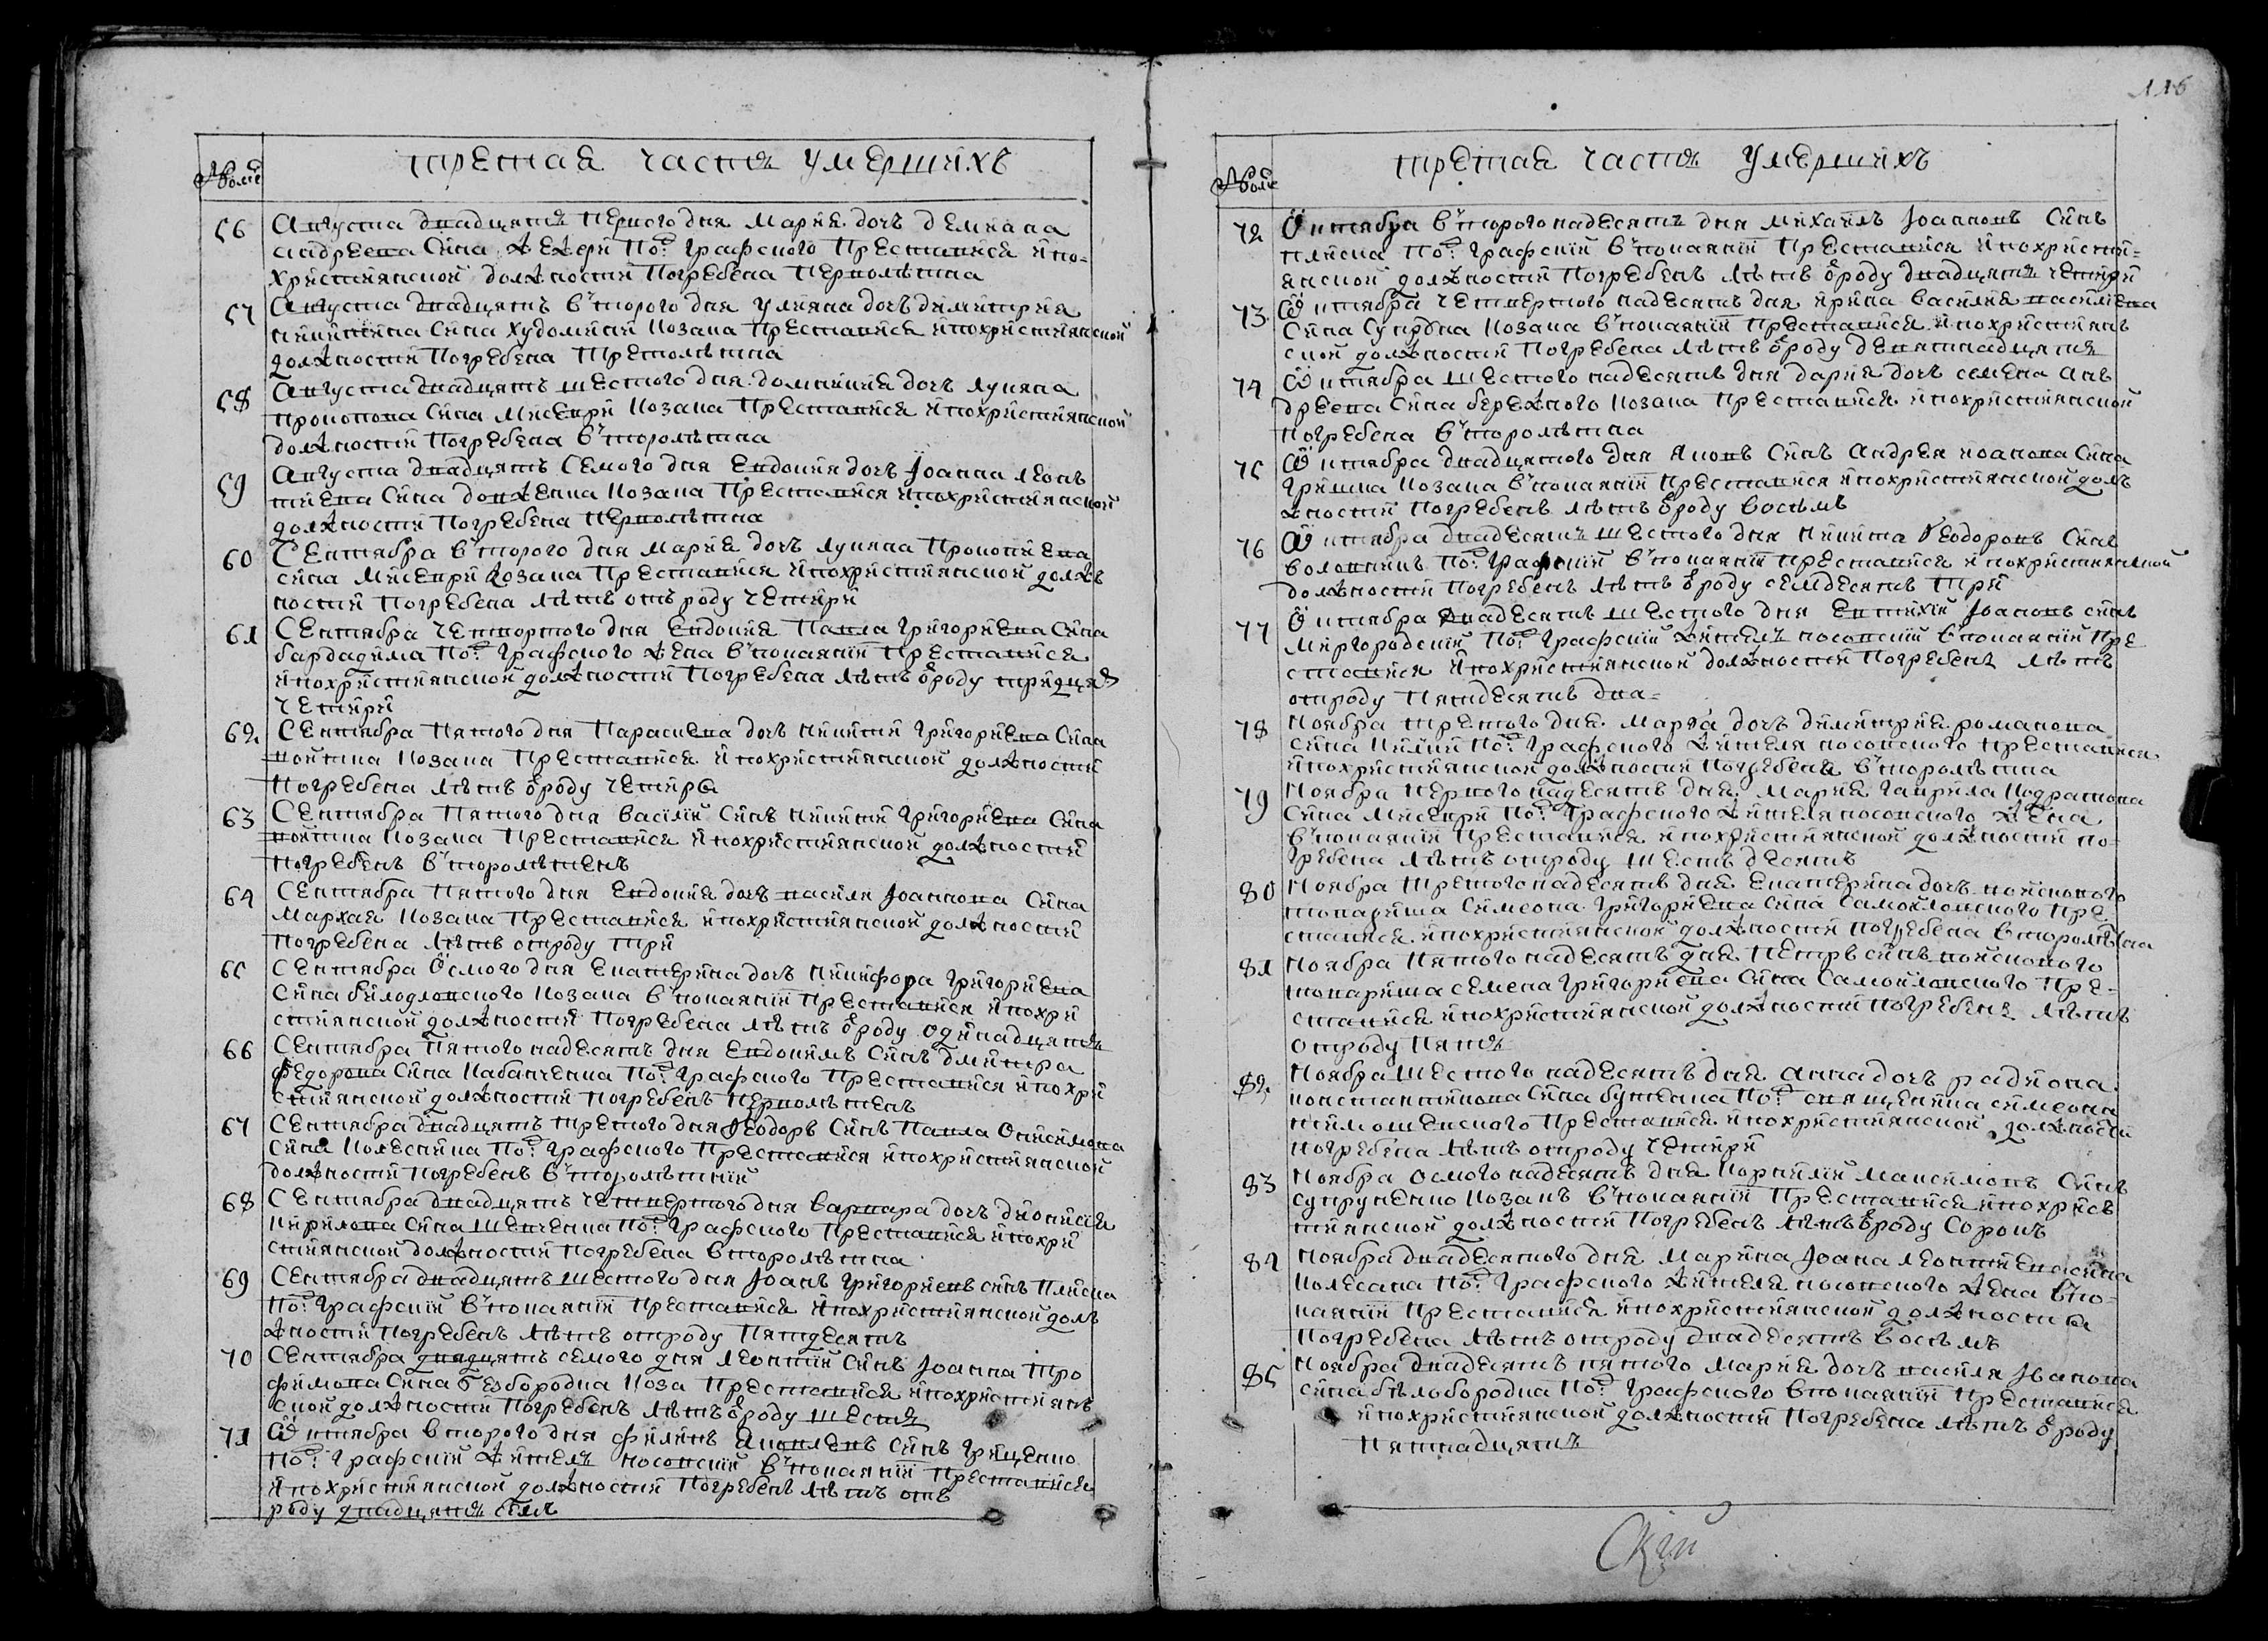 третая часть умершихъ
56 Августа двадцять первого дня Мария дочъ Демяна
Андреева сина Жежери по: графского преставися и по-
християнской должности погребена перволѣтна
57 Августа двадцять в'торого дня Улияна дочъ Димитрия
Никитина сина Худолики козака преставися и похристиянской
должности погребена третолѣтна
58 Августа двадцять шестого дня Домникия дочъ Лукяна
Прокопова сина Мисеври козака преставися и похристиянской
должности погребена в'торолѣтна
59 Августа двадцять семого дня Евдокия дочъ Іоанна Леонъ
тиева сина Довженка козака преставися и похристиянской
должности погребена перволѣтна
60 Сентября в'торого дня Мария дочъ Лукяна Прокопиева
сина Мисеври козака преставися и похристиянской долж
ности погребена лѣтъ отъ роду четири
61 Сентября четвортого дня Евдокия Павла Григориева сина
Бардадима по: графского жена в'покаянии преставися
и похристиянской должности погребена лѣтъ ѿроду тридця
четири
62 Сентября пятого дня Парасκева дочъ Никити Григориева сина
Койтша козака преставися и похристиянской должности
погребена лѣтъ ѿроду четири
63 Сентября пятого дня Василий синъ Никити Григориева сина
козака преставися и похристиянской должности
погребенъ в'торолѣтенъ
64 Сентября пятого дня Евдокия дочъ василя Іоаннова сина
Мархая козака преставися и похристиянской должности
погребена лѣтъ отроду три
65 Сентября ѿсмого дня Екатерина дочъ Никифора Григориева
сина козака в'покаянии преставися и похри
стиянской должности погребена лѣтъ ѿроду одинадцять
66 Сентября пятого надесять дня Евдокимъ синъ Дмитра
Федорова сина Кабанченка по: графского преставися и похри
стиянской должности погребенъ перволѣтенъ
67 Сентября двадцять третого дня Ѳеодоръ синъ Павла Онисимова
сина Колесника по: графского преставися и похристиянской
должности погребенъ в'торолѣтний
68 Сентября двадцять четвертого дня Варвара дочъ Дионисия
Кирилова сина Шевченка по: графского преставися и похри
стиянской должности погребена второлѣтна
69 Сентября двадцять шестого дня Іоанъ Григориевъ синъ Плиска
по: графский в'покаянии преставися и похристиянской долъ
жности погребенъ лѣтъ отроду пятдесятъ
70 Сентября двадцять семого дня Леонтий синъ Іоанна Тро
фимова сина Безбородка коза преставися и похристиянъ
ской должности погребенъ лѣтъ ѿроду шесть
71 Ѿктября второго дня Филипъ Яковлевъ синъ Гриценко
по: графский житель носовский в'покаянии преставися
и похристиянской должности погребенъ лѣтъ отъ
роду двадцять
116
третая часть умершихъ
72 Ѿктября в'торого надесять дня Михаилъ Іоанновъ синъ
плиска по: графский в'покаянии преставися и похристи-
янской должности погребенъ лѣтъ ѿроду двадцять четири
73 Ѿктября четвертого надесять дня Ирина василия василиева
сина козака в'покаянии преставися и похристиянъ
ской должности погребена лѣтъ ѿроду девятнадцять
74 Ѿктября шестого надесять дня Дария дочъ Семена Анъ
дреева сина Бережного козака преставися и похристиянской
погребена в'торолѣтна
75 Ѿктября двадцятого дня Яковъ синъ Андрея Иоанова сина
Гришка козака в'покаянии преставися и похристиянской долъ
жности погребенъ лѣтъ ѿроду восѣмъ
76 Ѿктября двадесять шестого дня Никита Ѳеодоровъ синъ
волошинъ по: графский в'покаянии преставися и похристиянской
должности погребенъ лѣтъ ѿроду семдесятъ три
77 Ѿктября двадесять шестого дня Евтихий Іоановъ синъ
Миргородский по: графский житель носовский в'покаянии пре
ставися и похристиянской должности погребенъ лѣтъ
отроду пятдесятъ два-
78 Ноября третого дня Марѳа дочъ Димитрия романова
сина по: графского жителя носовского преставися
и похристиянской должности погребена в'торолѣтна
79 Ноября первого надесять дня Мария Гаврила Кодратова
сина Мисеври по: графского жителя носовского жена
в'покаянии преставися и похристиянской должности по-
гребена лѣтъ отроду шестьдесятъ
80 Ноября третого надесять дня Екатерина дочъ войскового
товариша Симеона Григориева сина Самойловского пре-
ставися и похристиянской должности погребена второлѣтна
81 Ноября пятого надесять дня Петръ синъ войскового
товариша Семена Григориева сина Самойловского пре-
ставися и похристиянской должности погребенъ лѣтъ
отроду пять
82 Ноября шестого надесять дня Анна дочъ радиона
константинова сина по: священика симеона
тимошевского преставися и похристиянской должности
погребена лѣтъ отроду четири
83 Ноября осмого надесять дня Корнилий Максимовъ синъ
Супруненко козакъ в'покаянии преставися и похрисъ
тиянской должности погребенъ лѣтъ ѿроду сорокъ
84 Ноября двадесятого дня Марина Іоана Леонтиева сина
Колесана по: графского жителя носовского жена в'по-
каянии преставися и похристиянской должности
погребена лѣтъ отроду двадесять восѣмъ
85 Ноября двадесять пятого Мария дочъ василя Іванова
сина Бѣлобородка по: графского в'покаянии преставися
и похристиянской должности погребена лѣтъ ѿроду
пятнадцять